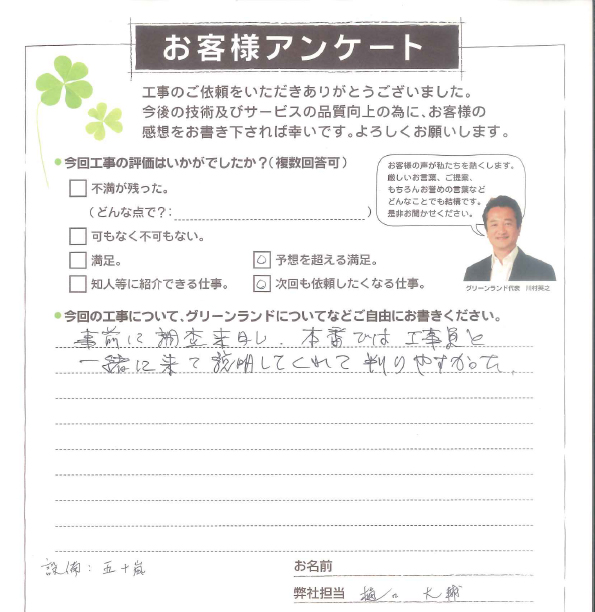 お客様アンケート
工事のご依頼をいただきありがとうございました。
今後の技術及びサービスの品質向上の為に、お客様の
感想をお書き下されば幸いです。よろしくお願いします。
●今回工事の評価はいかがでしたか?(複数回答可)
お客様の声が私たちを熱くします。
厳しいお言葉、ご提案、
もちろんお誉めの言葉など
どんなことでも結構です。
是非お聞かせください。
□ 不満が残った。
(どんな点で?: )
□ 可もなく不可もない。
□ 満足。 ○ 予想を超える満足。
□ 知人等に紹介できる仕事。 ○ 次回も依頼したくなる仕事。
グリーンランド代表 川村英之
●今回の工事について、グリーンランドについてなどご自由にお書きください。
事前に調査来日し、本番では工事員と
一緒に来て説明してくれて判りやすかった。
設備:五十嵐
お名前
弊社担当 樋口 大輔